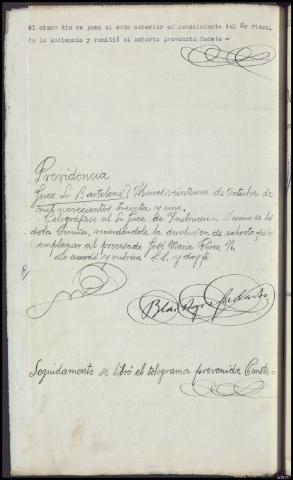 el mismo dia se puso el auto anterior en conocimiento del Sr Fiscal
de la Audiencia y remitió el exhorto prevenido.Conste =
Providencia
Juez Sr Bartolomé veintiuno de Octubre de
mil novecientos treinta y uno.
Telegráfiese al Sr Juez de Instrucción Decano de los
de la Coruña, recordándole la devolución de exhorto pa
emplazar al procesado José María Pérez
Lo acordó y rubrica S.S. y doy fe
Blas
Seguidamente se libró el telegrama prevenido Conste =